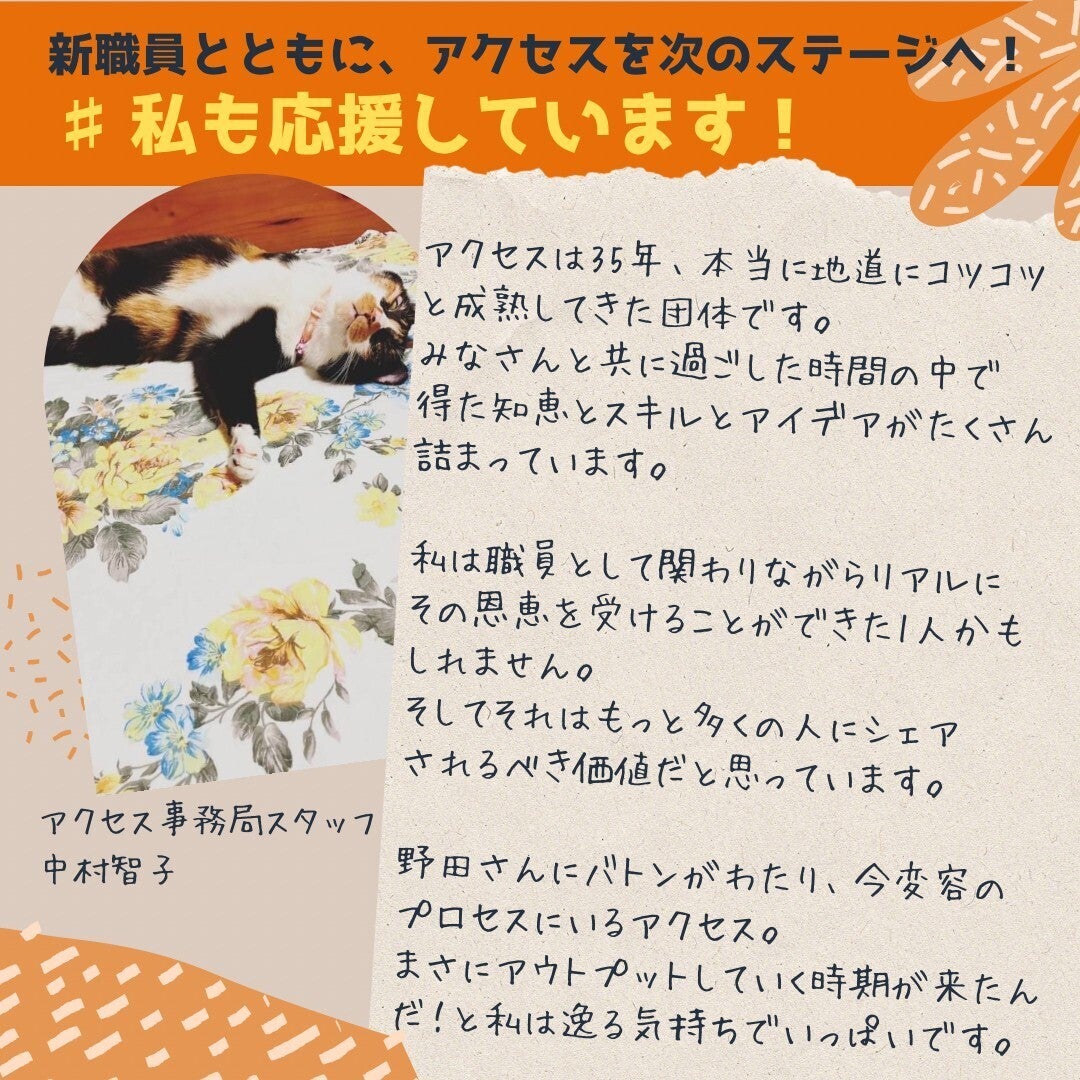 新職員とともに、アクセスを次のステージへ！
＃私も応援しています！
アクセスは35年、本当に地道にコツコツ
と成熟してきた団体です。
みなさんと共に過ごした時間の中で
得た知恵とスキルとアイデアがたくさん
詰まっています。
私は職員として関わりながらリアルに
その恩恵を受けることができた1人かも
しれません。
そしてそれはもっと多くの人にシェア
されるべき価値だと思っています。
野田さんにバトンがわたり、今変容の
プロセスにいるアクセス。
まさにアウトプットしていく時期が来たん
だ！と私は逸る気持ちでいっぱいです。
アクセス事務局スタッフ
中村智子